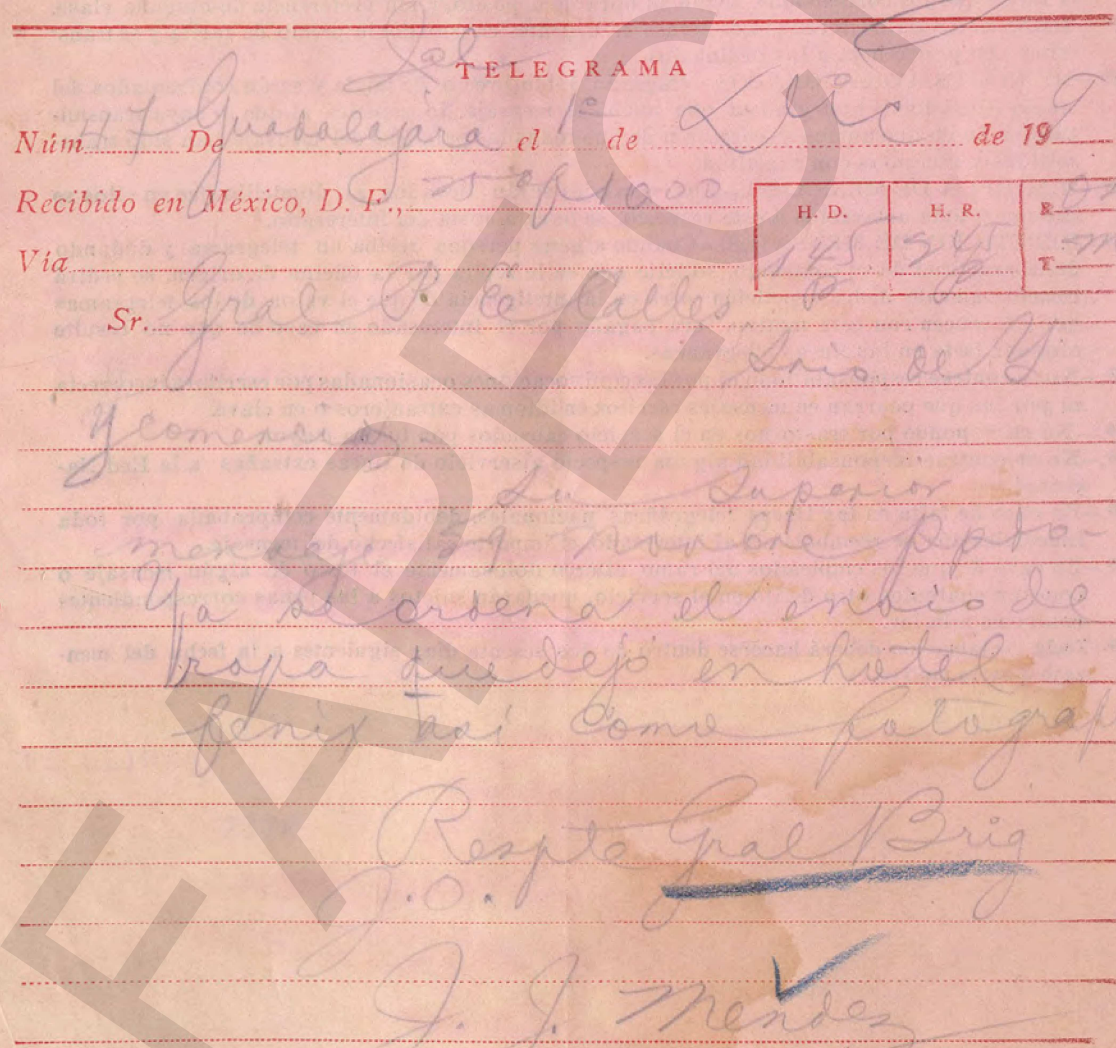 Jal
TELEGRAMA
Núm 47 De Guadalajara el 1º de Dic de 19 9
Recibido en México, D. F., 25 of 1600
H. D. H. R. R
Vía 145 245 T m
P P
Sr. Gral P. E. Calles
Srio de Y
y comercio
Su superior
mensaje mi nombre ppdo.
Ya se ordena el envio de
ropa que dejó en hotel
fenix asi como fotograf
Respte Gral Brig
J.O.
J. J. Mendez
FAPEC